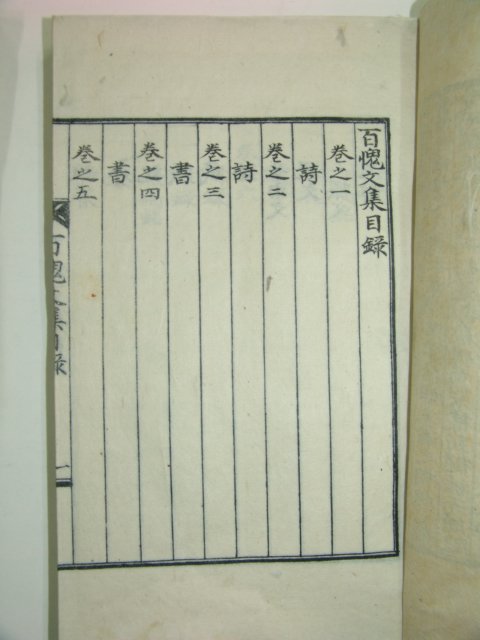 百愧文集目録
卷之一
詩
卷之二
詩
卷之三
書
卷之四
書
卷之五
百愧文集目録
一